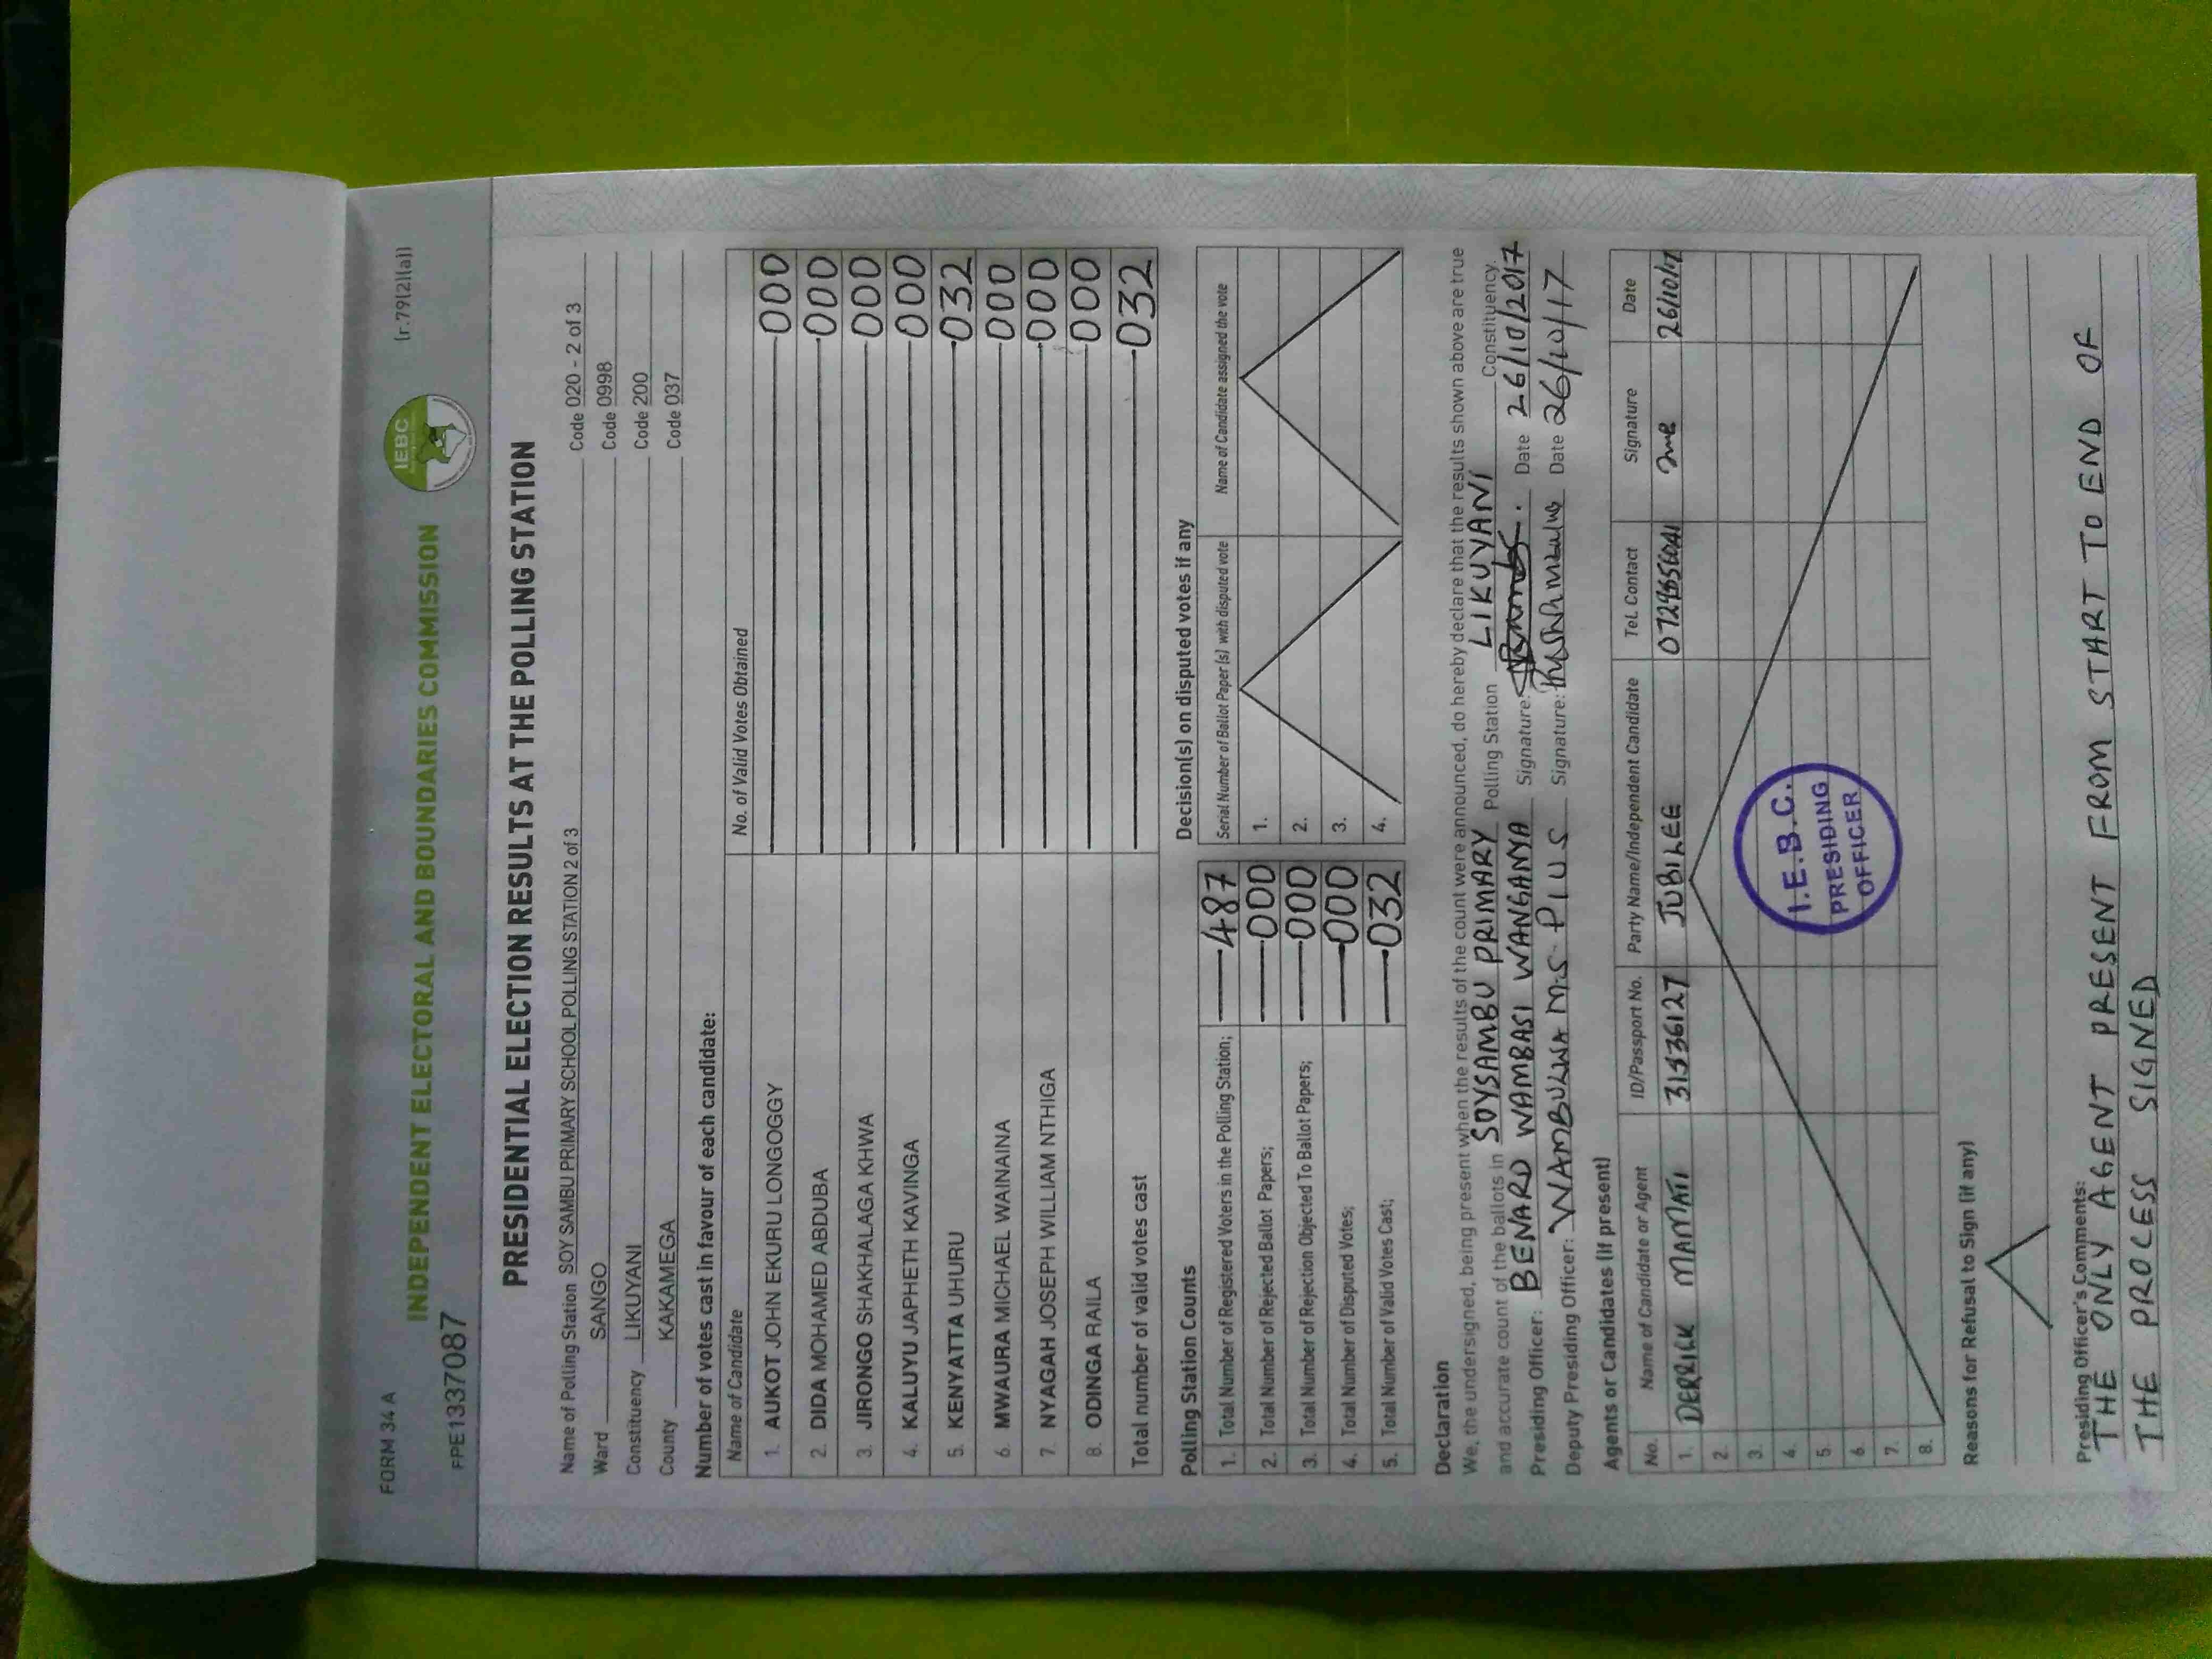 FORM 34 A
(r.79(2)(a))
INDEPENDENT ELECTORAL AND BOUNDARIES COMMISSION
IEBC
FPE1337087
PRESIDENTIAL ELECTION RESULTS AT THE POLLING STATION
Name of Polling Station SOY SAMBU PRIMARY SCHOOL POLLING STATION 2 of 3 Code 020 - 2 of 3
Ward SANGO Code 0998
Constituency LIKUYANI Code 200
County KAKAMEGA Code 037
Number of votes cast in favour of each candidate:
Name of Candidate No. of Valid Votes Obtained
1. AUKOT JOHN EKURU LONGOGGY 000
2. DIDA MOHAMED ABDUBA 000
3. JIRONGO SHAKHALAGA KHWA 000
4. KALUYU JAPHETH KAVINGA 000
5. KENYATTA UHURU 032
6. MWAURA MICHAEL WAINAINA 000
7. NYAGAH JOSEPH WILLIAM NTHIGA 000
8. ODINGA RAILA 000
Total number of valid votes cast 032
Polling Station Counts
1. Total Number of Registered Voters in the Polling Station; 487
2. Total Number of Rejected Ballot Papers; 000
3. Total Number of Rejection Objected To Ballot Papers; 000
4. Total Number of Disputed Votes; 000
5. Total Number of Valid Votes Cast; 032
Decision(s) on disputed votes if any
Serial Number of Ballot Paper (s) with disputed vote Name of Candidate assigned the vote
1.
2.
3.
4.
Declaration
We, the undersigned, being present when the results of the count were announced, do hereby declare that the results shown above are true
and accurate count of the ballots in SOYSAMBU PRIMARY Polling Station LIKUYANI Constituency.
Presiding Officer: BENARD WAMBASI WANGANYA Signature: Date 26/10/2017
Deputy Presiding Officer: WAMBULWA M.S. PIUS Signature: Date 26/10/17
Agents or Candidates (if present)
No. Name of Candidate or Agent ID/Passport No. Party Name/Independent Candidate Tel. Contact Signature Date
1. DERRICK MAMATI 31336127 JUBILEE 26/10/17
2.
3.
4.
5.
6.
7.
8.
I.E.B.C.
PRESIDING
OFFICER
Reasons for Refusal to Sign (if any)
Presiding Officer's Comments:
THE ONLY AGENT PRESENT FROM START TO END OF
THE PROCESS SIGNED